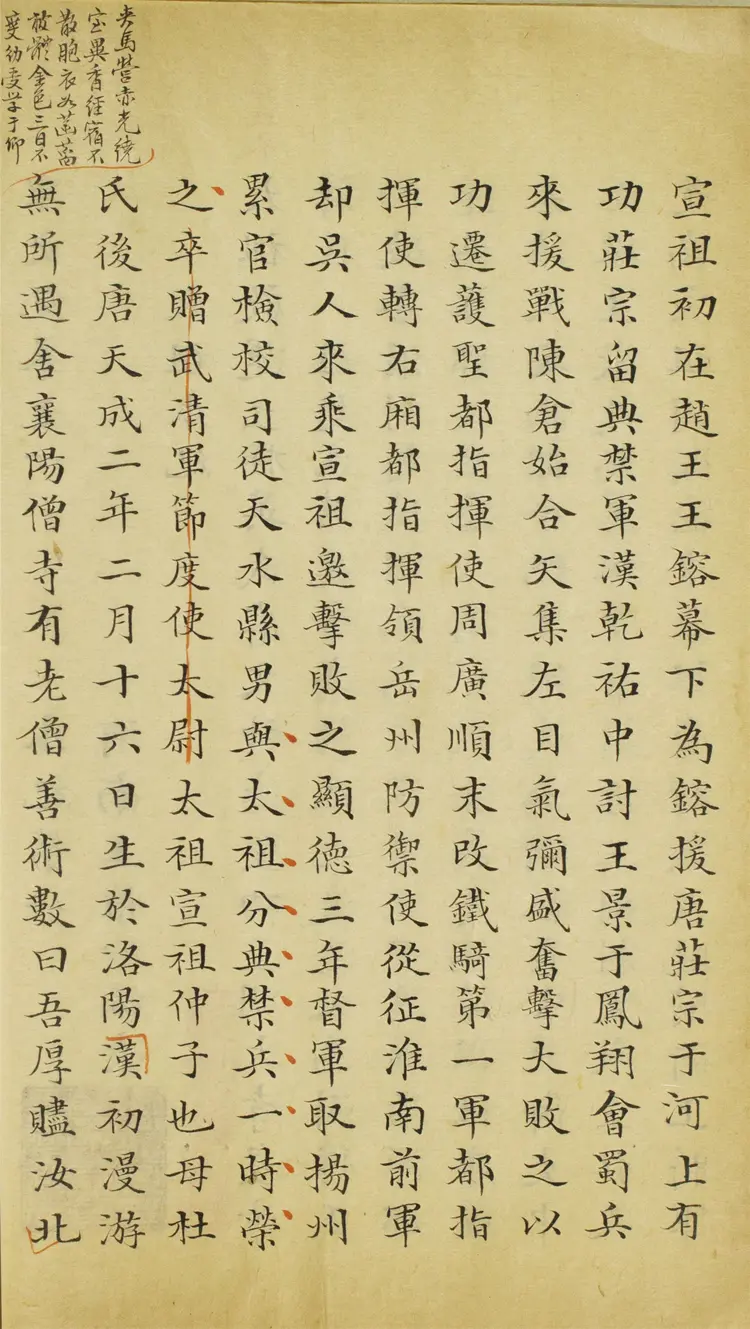 夾馬營赤光繞
室異香經宿不
散胞衣如菡萏
故體金色三日不
變幼受學于仰
宣祖初在趙王王鎔幕下為鎔援唐莊宗于河上有
功莊宗留典禁軍漢乾祐中討王景于鳳翔會蜀兵
來援戰陳倉始合矢集左目氣彌盛奮擊大敗之以
功遷護聖都指揮使周廣順末改鐵騎第一軍都指
揮使轉右廂都指揮領岳州防禦使從征淮南前軍
却吳人來乘宣祖邀擊敗之顯德三年督軍取揚州
累官檢校司徒天水縣男與太祖分典禁兵一時榮
之卒贈武清軍節度使太尉太祖宣祖仲子也母杜
氏後唐天成二年二月十六日生於洛陽漢初漫游
無所遇舍襄陽僧寺有老僧善術數曰吾厚贐汝北